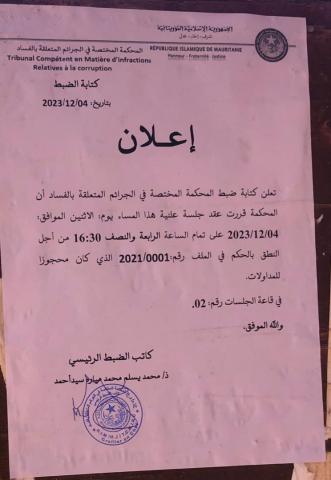 الجمهورية الإسلامية الموريتانية
شرف - إخاء - عدل
RÉPUBLIQUE ISLAMIQUE DE MAURITANIE
Honneur - Fraternité - Justice
المحكمة المختصة في الجرائم المتعلقة بالفساد
Tribunal Compétent en Matière d'infractions
Relatives à la corruption
كتابة الضبط
بتاريخ: 2023/12/04
إعلان
تعلن كتابة ضبط المحكمة المختصة في الجرائم المتعلقة بالفساد أن
المحكمة قررت عقد جلسة علنية هذا المساء يوم: الاثنين الموافق:
2023/12/04 على تمام الساعة الرابعة والنصف 16:30 من أجل
النطق بالحكم في الملف رقم: 2021/0001 الذي كان محجوزا
للمداولات.
في قاعة الجلسات رقم: 02.
والله الموفق.
كاتب الضبط الرئيسي
ذ/ محمد يسلم محمد مبارك سيدأحمد